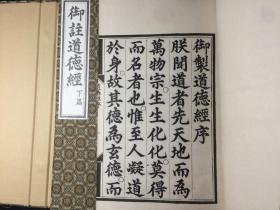 御註道德經
下篇
御製道德經序
朕聞道者先天地而為
萬物宗生生化化莫得
而名者也惟至人凝道
於身故其德為玄德而